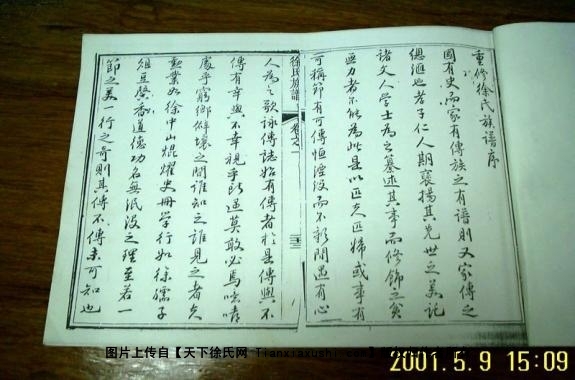 重修徐氏族譜序
國有史而家有傳族之有譜則又家傳之
總滙也孝子仁人期襃揚其先世之美託
諸文人学士為之纂述其事而修飾之貧
無力者不能為此是以匹夫匹婦或事有
可稱節有可傳恒湮没而不彰間遇有心
徐氏族譜
卷之一
人為之歌詠傳誌始有傳者於是傳與不
傳有幸與不幸視乎所遇莫敢必焉嗟嗟
處乎窮鄉僻壤之間誰知之誰見之者矣
勲業如徐中山焜耀史冊学行如徐孺子
俎豆馨香道德功名無泯没之理至若一
節之美一行之奇則其傳不傳未可知也
图片上传自【天下徐氏网 tianxiaxushi.com】
2001.5.9 15:09